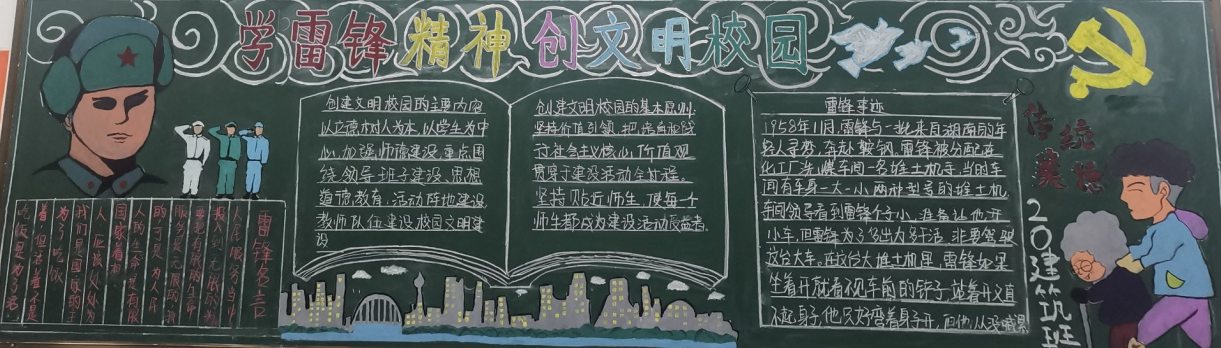 学雷锋精神创文明校园
创建文明校园的主要内容
以立德树人为本,以学生为中
心,加强师德建设,重点围
绕领导班子建设,思想
道德教育,活动阵地建设
教师队伍建设校园文明建
设
创建文明校园的基本原则.
坚持价值引领,把培育和践
行社会主义核心价值观
贯穿于建设活动全过程.
坚持贴近师生,使每一个
师生都成为建设活动受益者.
雷锋事迹
1958年11月,雷锋与一批来自湖南的年
轻人寻梦,奔赴鞍钢,雷锋被分配在
化工厂洗煤车间一名推土机手,当时车
间有车身一大一小两种型号的推土机
车间领导看到雷锋个子小,准备让他开
小车,但雷锋为了多出力多干活,非要驾驶
这台大车.在这台大推土机里,雷锋如果
坐着开就看不见车前的铲子,站着开又直
不起身子,他只好弯着身子开,但他从没喊累
传统
美德
20建筑班
雷锋名言
人的生命是有限
国家着想
我们是国家的主
为了吃饭
着,但活着不是
吃饭是为了活